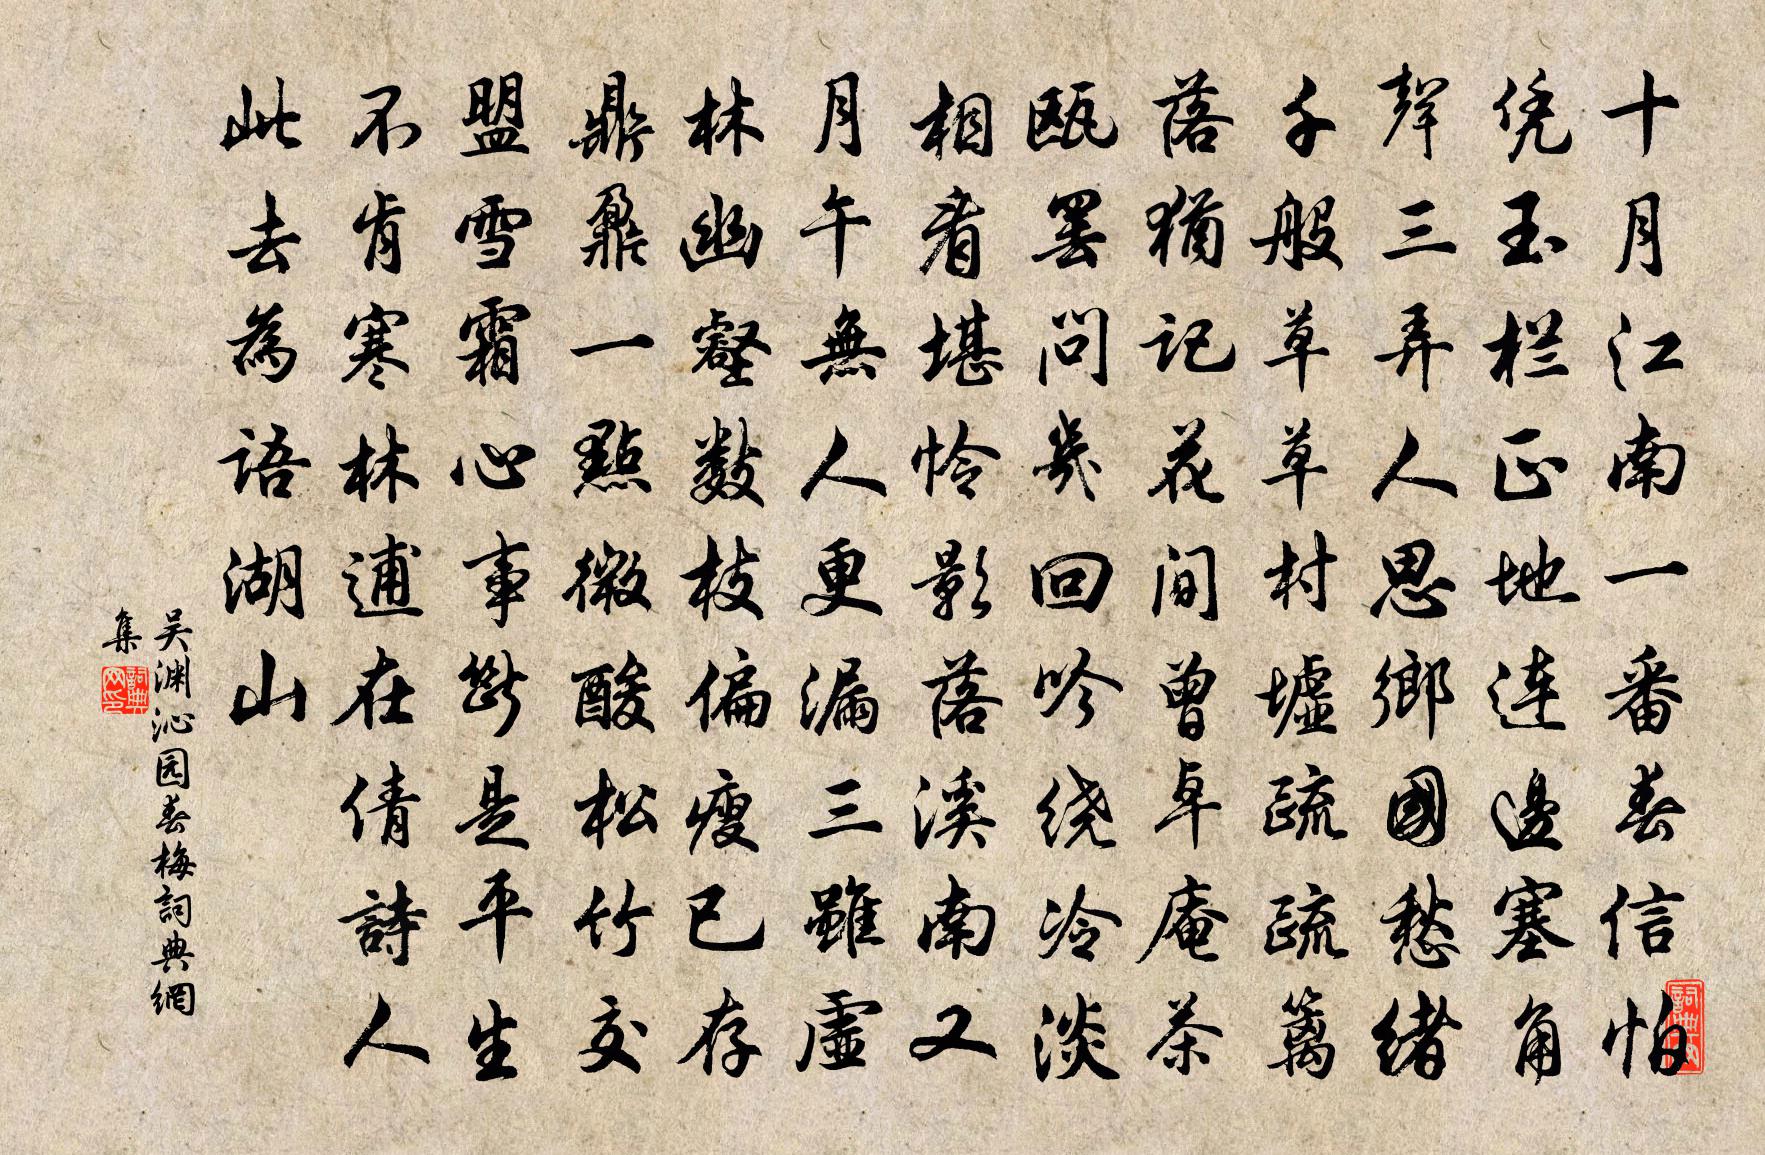 十月江南一番春信怕
凭玉栏正地連邊塞角
聲三弄人思鄉國愁緒
千般草草村墟疏疏篱
落猶記花間曾卓庵茶
瓯罢問幾回吟绕冷淡
相看堪怜影落溪南又
月午無人更漏三雖虚
林幽壑数枝偏瘦已存
鼎鼐一點微酸松竹交
盟雪霜心事斷是平生
不肯寒林逋在倩詩人
此去為語湖山
吴渊沁园春梅詞典網
集
詞典网印